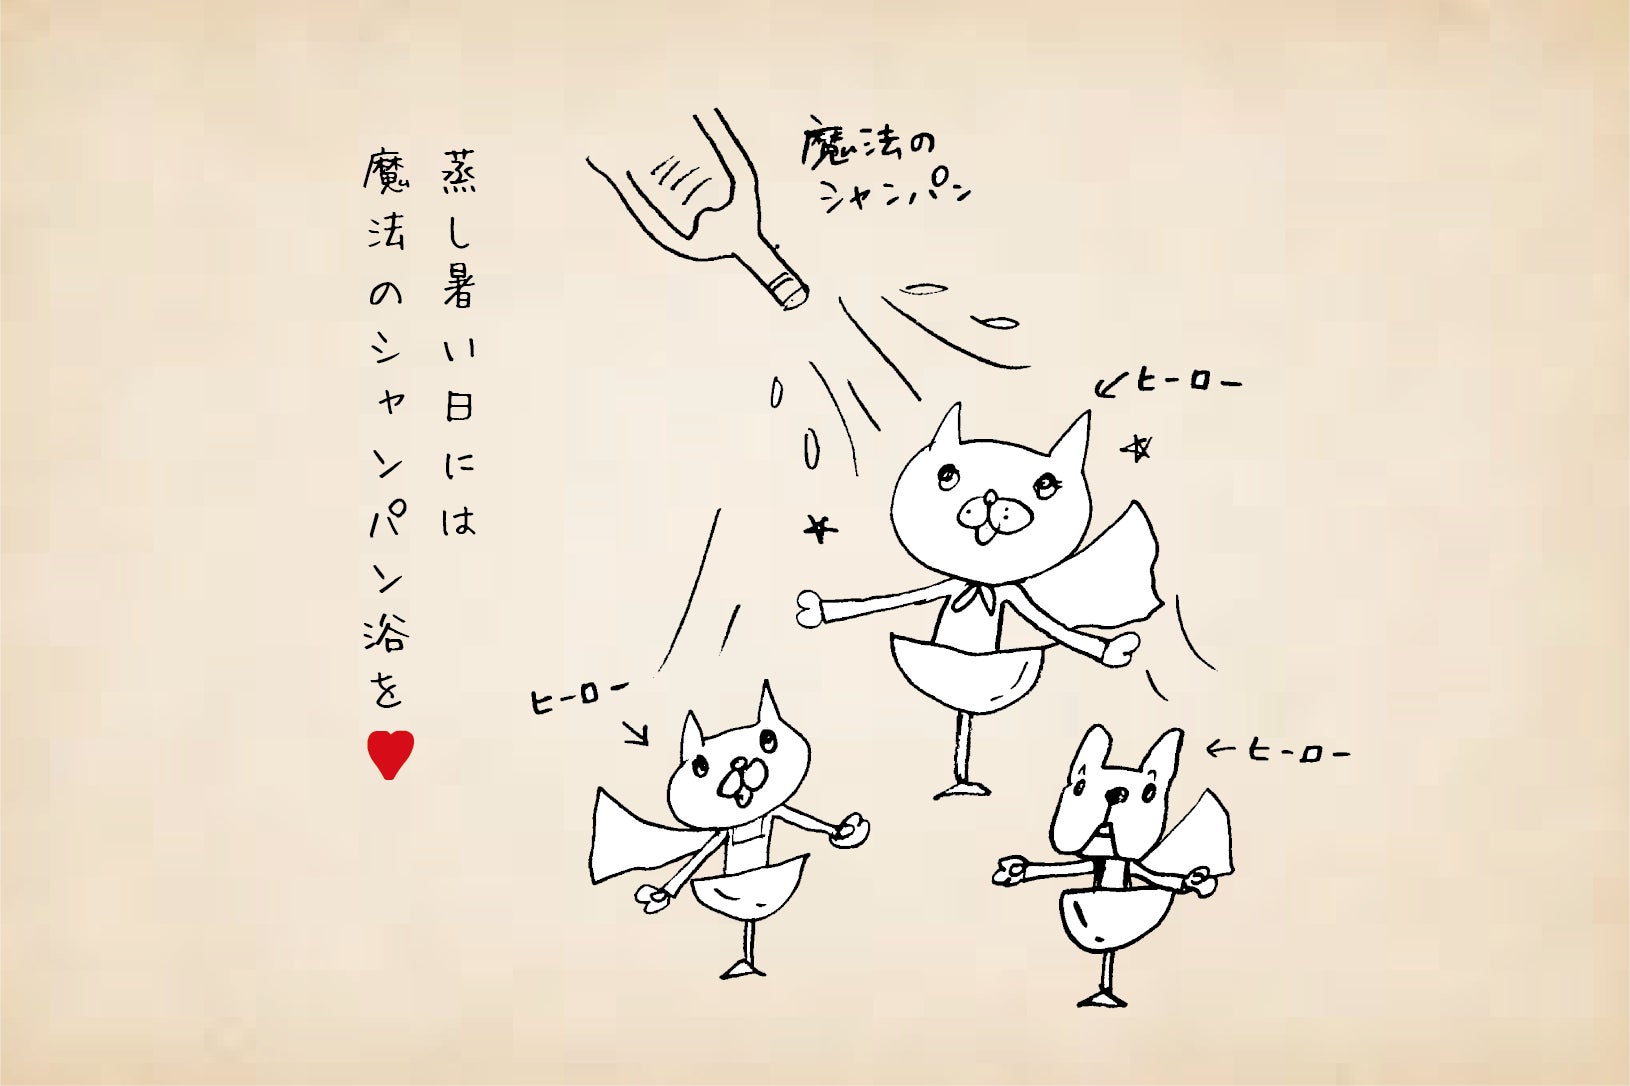 蒸し暑い日には
魔法のシャンパン浴を♥
魔法の
シャンパン
←ヒーロー
ヒーロー
←ヒーロー